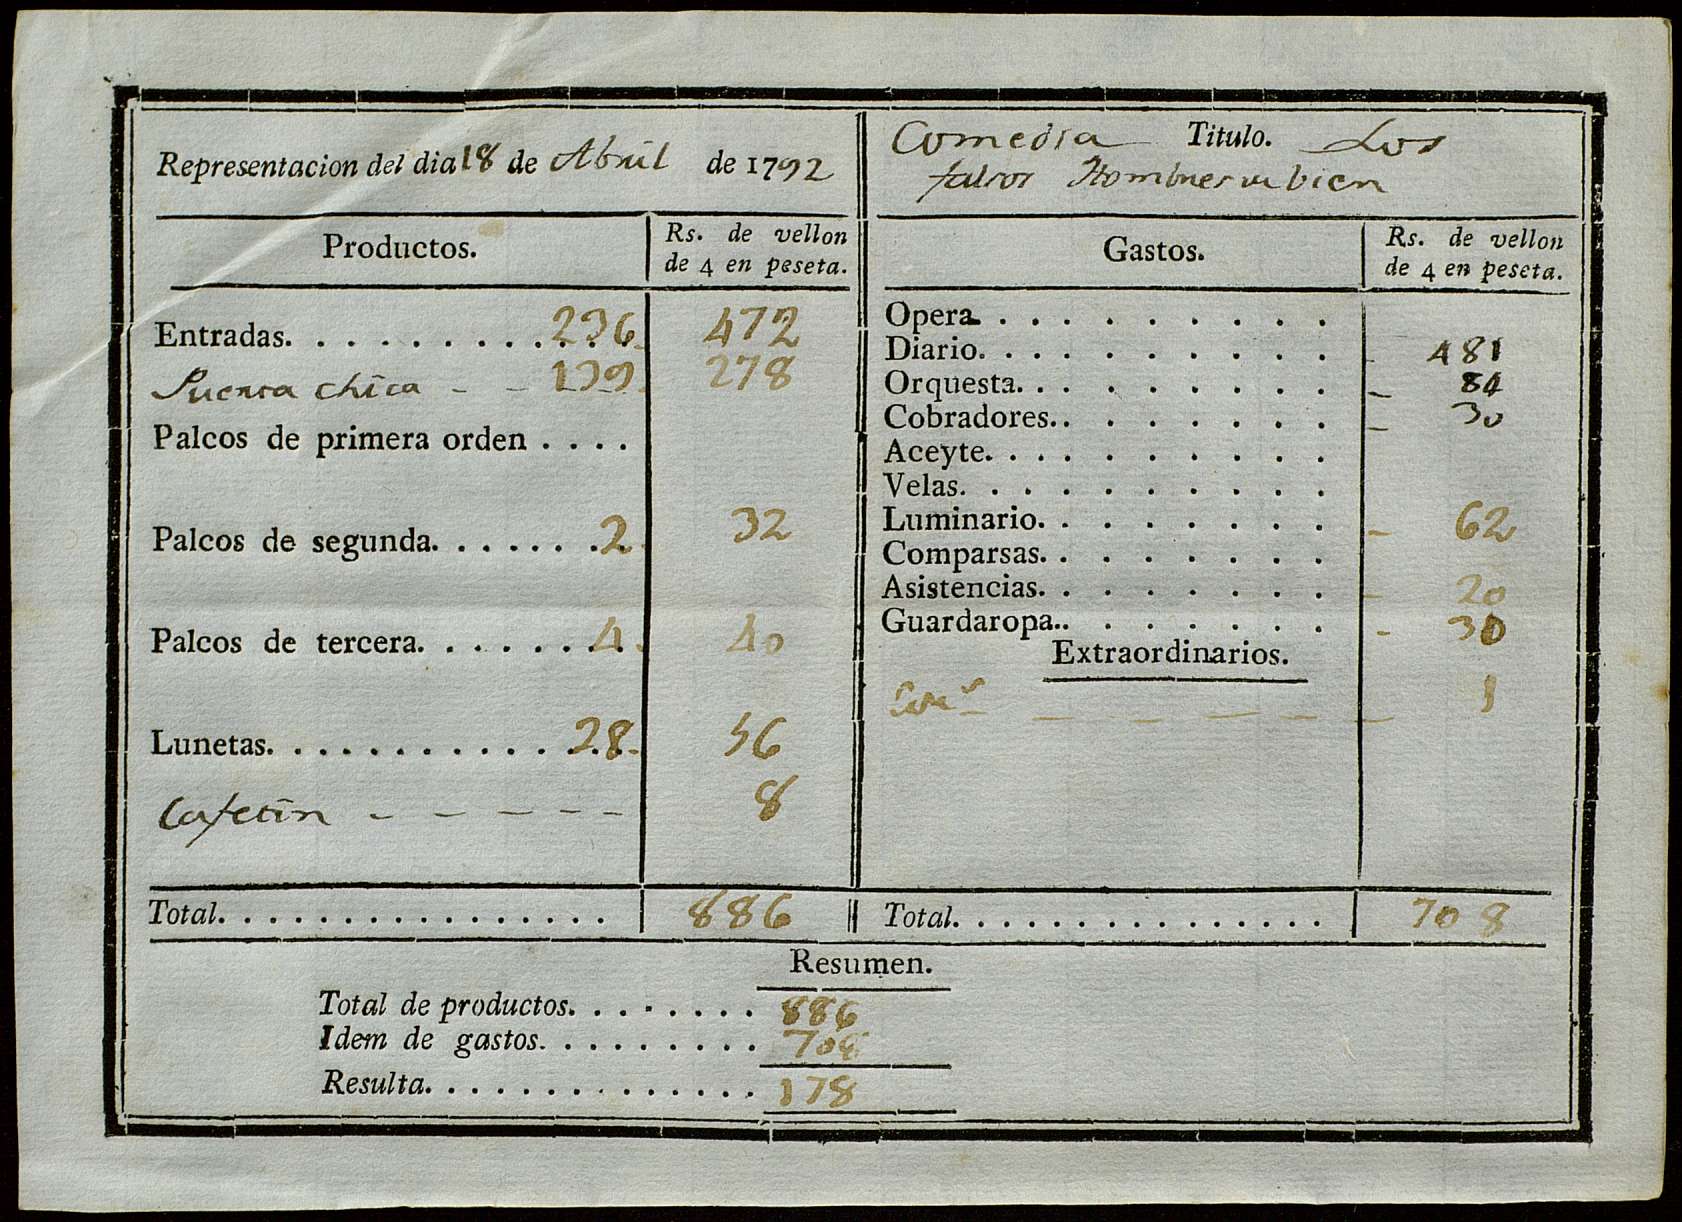 Representacion del dia 18 de Abril de 1792
Productos.
Rs. de vellon
de 4 en peseta.
Entradas. . . . . . . . . . . . . 236. 472
Puerta chica - - 139. 278
Palcos de primera orden . . . .
Palcos de segunda. . . . . . . . 2. 32
Palcos de tercera. . . . . . . . 4. 40
Lunetas. . . . . . . . . . . . . . 28. 56
Cafetin - - - - - 8
Total. . . . . . . . . . . . . . . . 886
Comedia Titulo. Los
falsos Hombres de bien
Gastos.
Rs. de vellon
de 4 en peseta.
Opera. . . . . . . . . .
Diario. . . . . . . . . . - 481
Orquesta. . . . . . . . . - 84
Cobradores. . . . . . . . - 30
Aceyte. . . . . . . . . .
Velas. . . . . . . . . . .
Luminario. . . . . . . . - 62
Comparsas. . . . . . . .
Asistencias. . . . . . . . - 20
Guardaropa. . . . . . . . - 30
Extraordinarios.
- - - - - - 1
Total. . . . . . . . . . . . . . . 708
Resumen.
Total de productos. . . . . . . . 886
Idem de gastos. . . . . . . . . . 708
Resulta. . . . . . . . . . . . . . 178